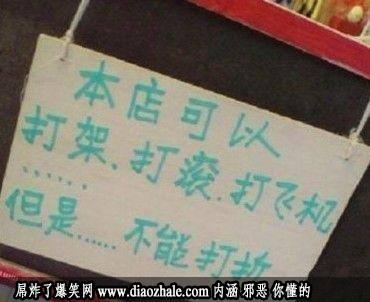 本店可以
打架.打滚.打飞机
......
但是......不能打折
屌炸了爆笑网 www.diaozhale.com 内涵 邪恶 你懂的